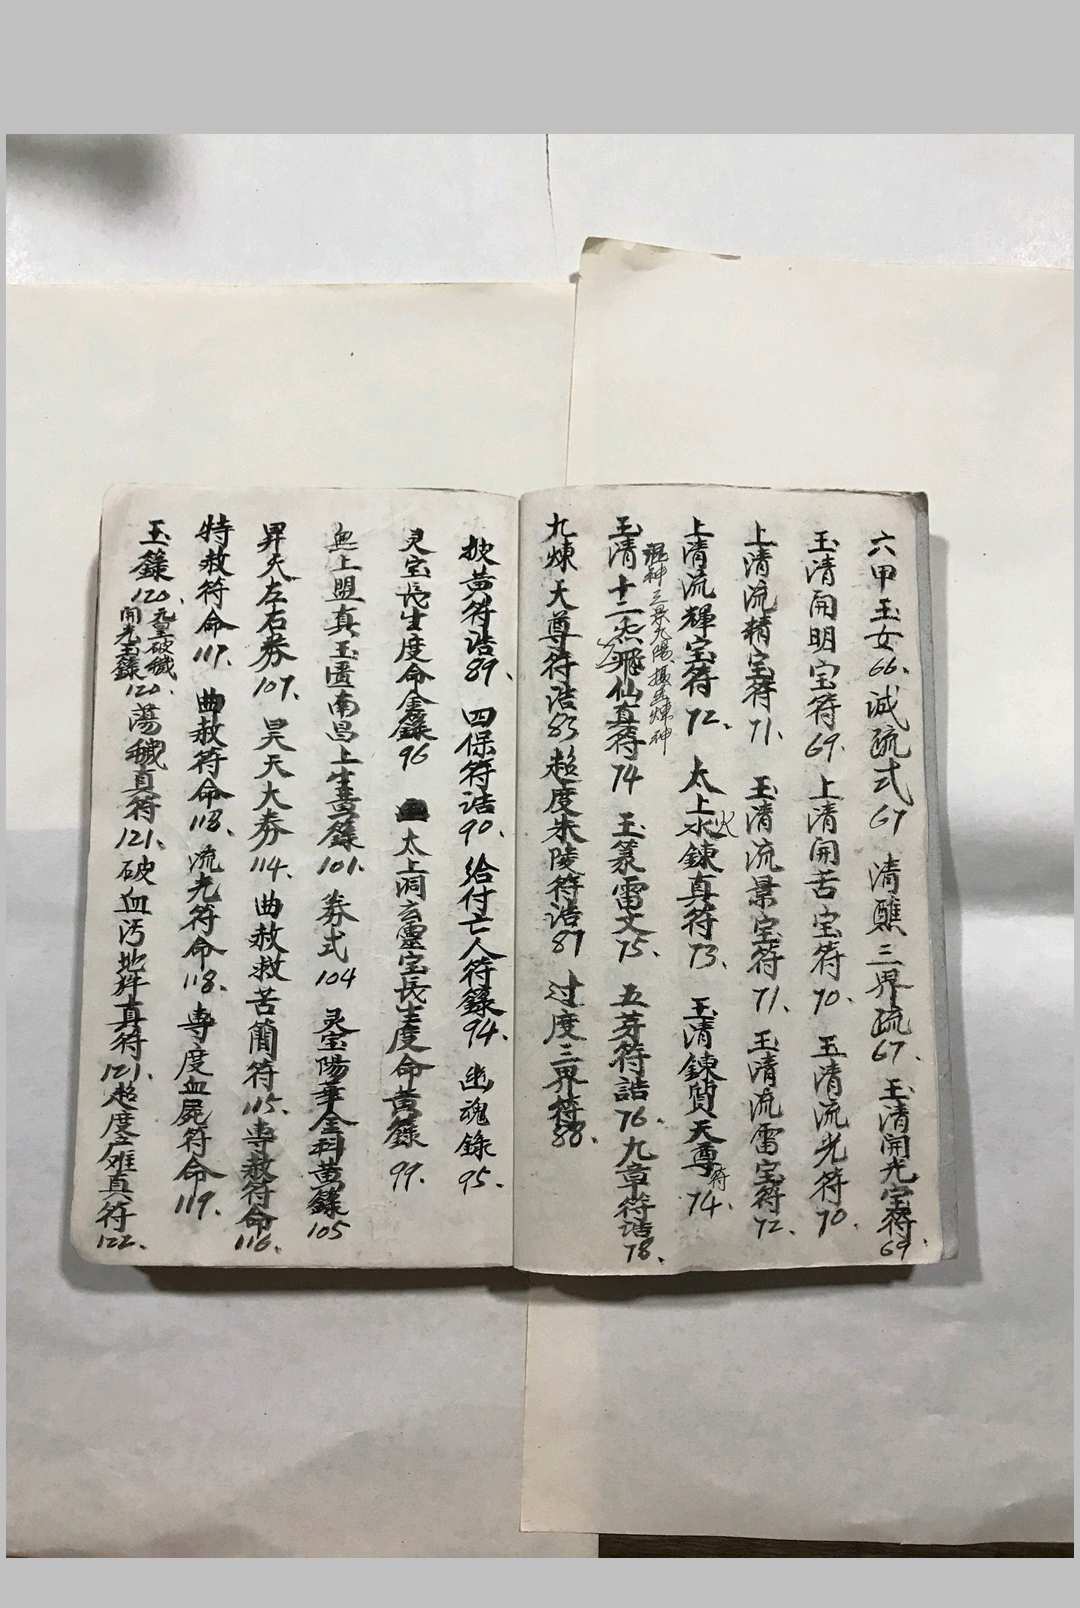 六甲玉女66、诚疏式67 清醮三界疏67、玉清開光宝符69、
玉清開明宝符69、上清開苦宝符70、玉清流光符70、
上清流精宝符71、玉清流景宝符71、玉清流雷宝符72、
上清流輝宝符72、太上水火鍊真符73、玉清鍊質天尊符74、
混神三景九陽攝 煉神
玉清十二炁飛仙真符74 玉篆雷文75、五芽符誥76、九章符诰78、
九煉天尊符诰83 超度朱陵符诰87 过度三界符88、
披黄符诰89、四保符诰90、给付亡人符籙94、幽魂錄95、
灵宝長生度命金籙96 太上洞玄靈宝長生度命黄籙99、
無上盟真玉匱南昌上生籙101、券式104 灵宝陽華全科黄籙105
昇天左右券107、昊天大券114、曲赦救苦簡符115、専赦符命116、
特赦符命117、曲赦符命118、流光符命118、専度血屍符命119、
玉籙120、元皇破穢開光玉籙120、蕩穢真符121、破血污地真符121、超度产难真符122、